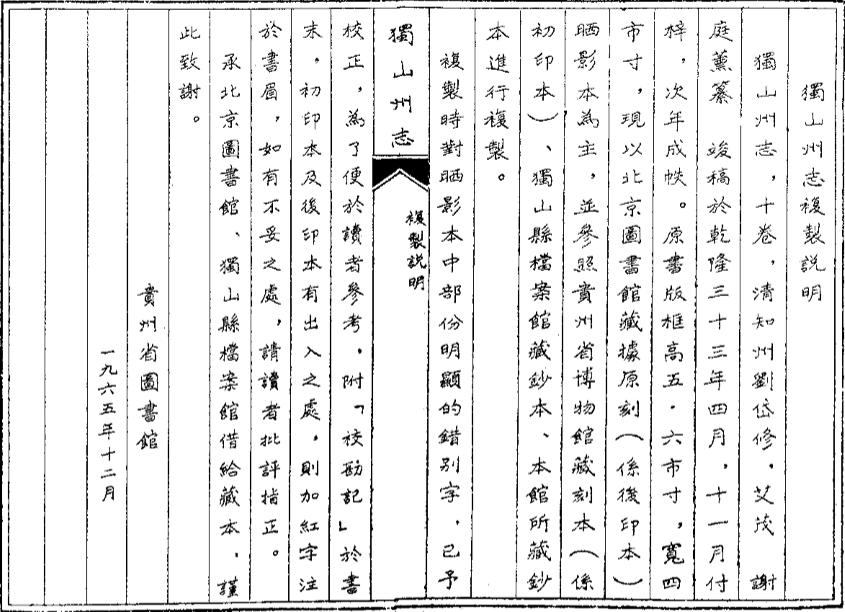 獨山州志複製説明
獨山州志，十卷，清知州劉岱修，艾茂 謝
庭薰纂 竣稿於乾隆三十三年四月，十一月付
梓，次年成帙。原書版框高五．六市寸，寬四
市寸，現以北京圖書館藏據原刻（係後印本）
晒影本為主，並參照貴州省博物館藏刻本（係
初印本）、獨山縣檔案館藏鈔本、本館所藏鈔
本進行複製。
複製時對晒影本中部份明顯的錯别字，已予
獨山州志 複製説明
校正，為了便於讀者參考，附「校勘記」於書
末，初印本及後印本有出入之處，則加紅字注
於書眉，如有不妥之處，請讀者批評指正。
承北京圖書館、獨山縣檔案館借給藏本，謹
此致謝。
貴州省圖書館
一九六五年十二月